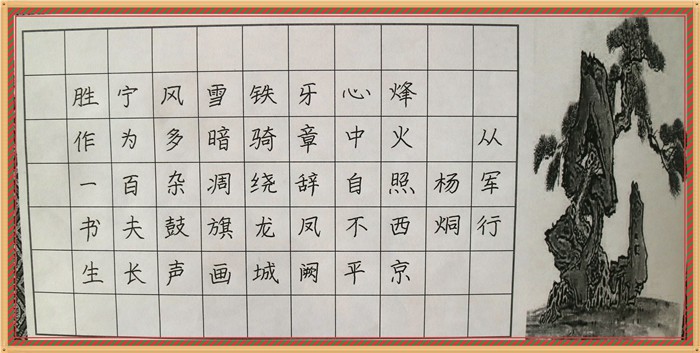 从军行
杨烔
烽火照西京
心中自不平
牙章辞凤阙
铁骑绕龙城
雪暗凋旗画
风多杂鼓声
宁为百夫长
胜作一书生